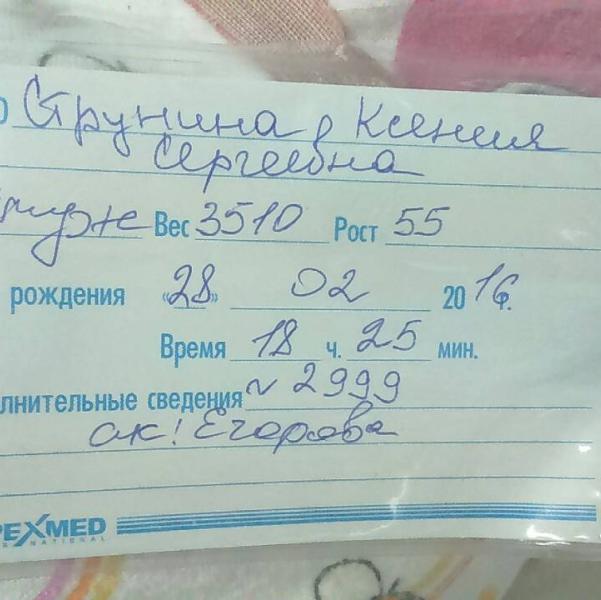 О Струнина Ксения
Сергеевна
муж Вес 3510 Рост 55
рождения «28» 02 2016г.
Время 18 ч. 25 мин.
лнительные сведения ~ 2999
ак! Егорова
PEXMED
INTERNATIONAL